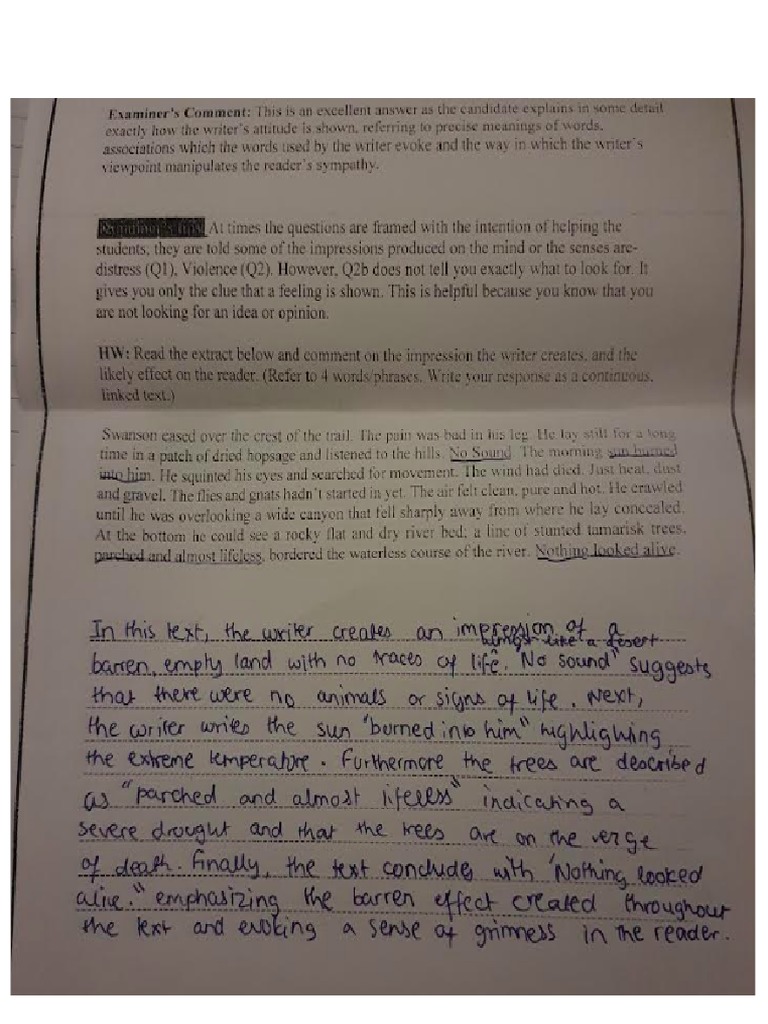 Examiner's Comment: This is an excellent answer as the candidate explains in some detail
exactly how the writer's attitude is shown, referring to precise meanings of words,
associations which the words used by the writer evoke and the way in which the writer's
viewpoint manipulates the reader's sympathy.
At times the questions are framed with the intention of helping the
students, they are told some of the impressions produced on the mind or the senses are-
distress (Q1), Violence (Q2). However, Q2b does not tell you exactly what to look for. It
gives you only the clue that a feeling is shown. This is helpful because you know that you
are not looking for an idea or opinion.
HW: Read the extract below and comment on the impression the writer creates, and the
likely effect on the reader. (Refer to 4 words/phrases. Write your response as a continuous,
linked text.)
Swanson eased over the crest of the trail. The pain was bad in his leg. He lay still for a long
time in a patch of dried hopsage and listened to the hills. No Sound. The morning sun burned
into him. He squinted his eyes and searched for movement. The wind had died. Just heat, dust
and gravel. The flies and gnats hadn't started in yet. The air felt clean, pure and hot. He crawled
until he was overlooking a wide canyon that fell sharply away from where he lay concealed.
At the bottom he could see a rocky flat and dry river bed; a line of stunted tamarisk trees,
parched and almost lifeless, bordered the waterless course of the river. Nothing looked alive.
In this text, the writer creates an impression of a
almost like a desert
barren, empty land with no traces of life. No sound" suggests
that there were no animals or signs of life. Next,
the writer writes the sun "burned into him" highlighing
the extreme temperature. Furthermore the trees are described
as "parched and almost lifeless" indicating a
severe drought and that the trees are on the verge
of death. Finally, the text concludes with 'Nothing looked
alive." emphasizing the barren effect created throughout
the text and evoking a sense of grimness in the reader.